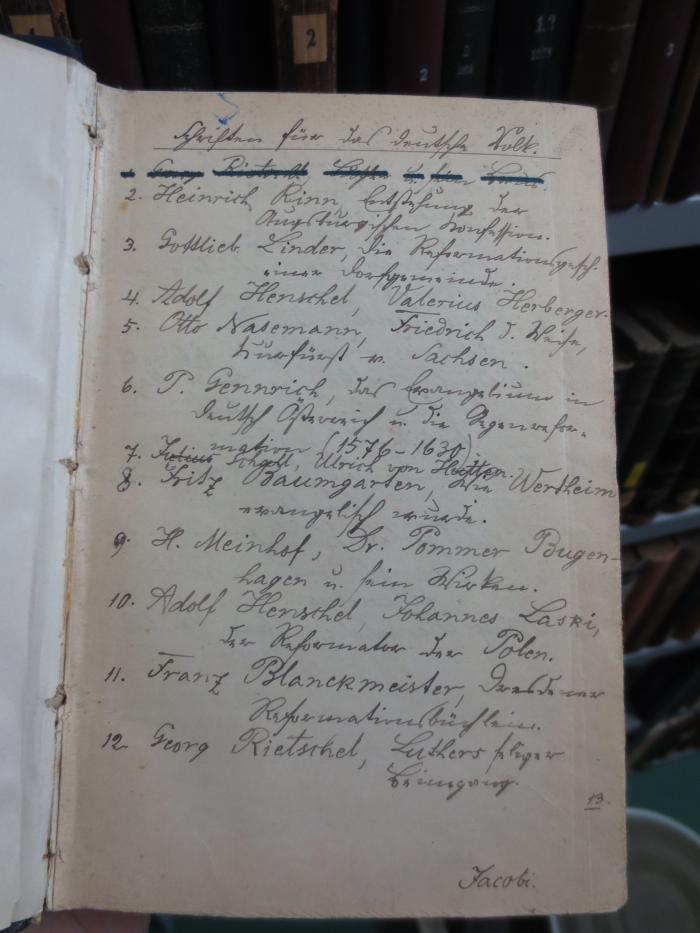 2
1.2
2
3
Schriften für das deutsche Volk.
1. Georg Rietschel Luther u. sein Haus.
2. Heinrich Rinn, Entstehung der
Augsburgischen Konfession.
3. Gottlieb Linder, Die Reformationsgesch.
einer Dorfgemeinde.
4. Adolf Henschel, Valerius Herberger.
5. Otto Nasemann, Friedrich d. Weise,
Kurfürst v. Sachsen.
6. P. Gennrich, das Evangelium in
Deutsch Österreich u. die Gegenrefor-
mation (1576-1630).
7. Julius Ulrich von Hutten.
8. Fritz Baumgarten, Wie Wertheim
evangelisch wurde.
9. H. Meinhof, Dr. Pommer Bugen-
hagen u. sein Wirken.
10. Adolf Henschel, Johannes Laski,
der Reformator der Polen.
11. Franz Blanckmeister, Dresdener
Reformationsbüchlein.
12. Georg Rietschel, Luthers seliger
Heimgang.
13.
Jacobi.